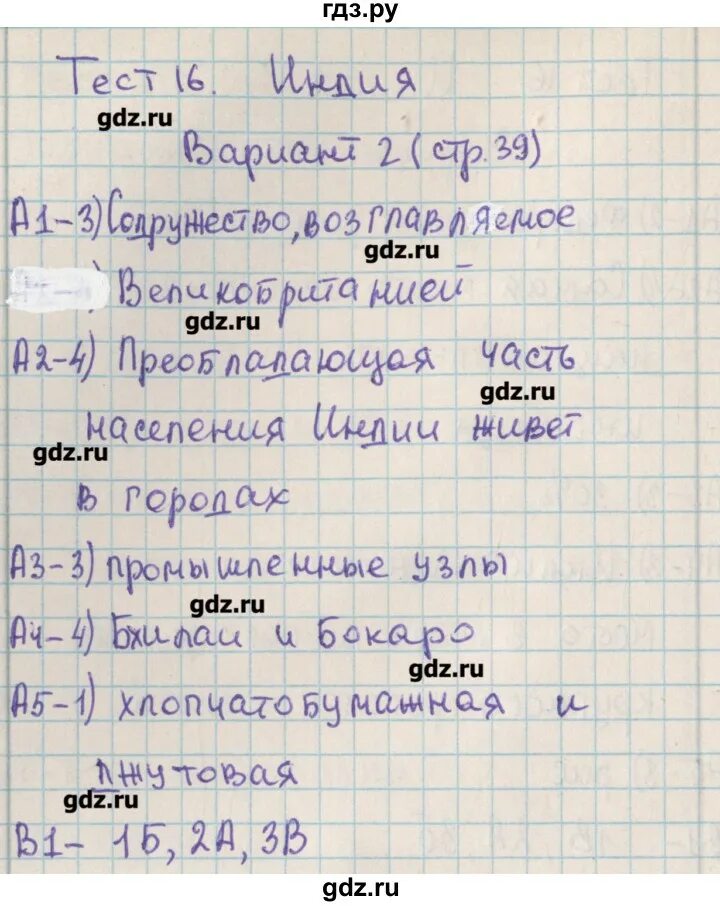 гдз.ру
Тест 16. Индия
gdz.ru
Вариант 2 (стр. 39)
А1-3) Содружество, возглавляемое
gdz.ru
Великобританией
gdz.ru
А2-4) Преобладающая часть
gdz.ru
населения Индии живет
gdz.ru
в городах
А3-3) промышленные узлы
gdz.ru
А4-4) Бхилаи и Бокаро
gdz.ru
А5-1) хлопчатобумажная и
джутовая
gdz.ru
В1- 1Б, 2А, 3В
gdz.ru